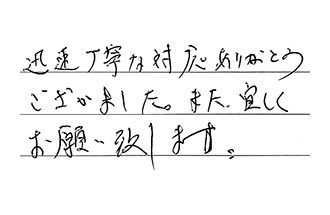 迅速丁寧な対応ありがとう
ございました。また、宜しく
お願い致します。